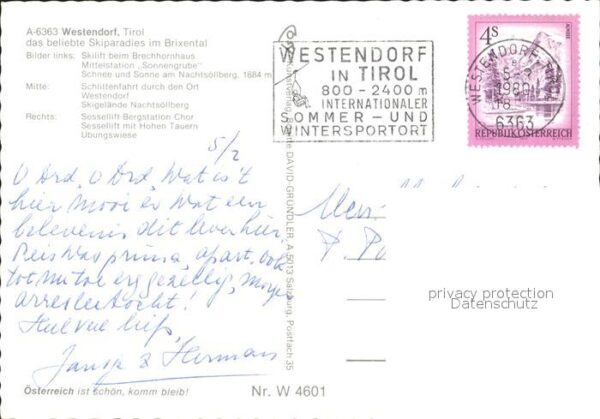 A-6363 Westendorf, Tirol
das beliebte Skiparadies im Brixental
Bilder links: Skilift beim Brechhornhaus
Mittelstation „Sonnengrube"
Schnee und Sonne am Nachtsöllberg, 1884 m
Mitte: Schlittenfahrt durch den Ort
Westendorf
Skigelände Nachtsöllberg
Rechts: Sessellift-Bergstation Chor
Sessellift mit Hohen Tauern
Übungswiese
WESTENDORF
IN TIROL
800 - 2400 m
INTERNATIONALER
SOMMER - UND
WINTERSPORTORT
4s
WESTENDORF, TIROL
1980
18
6363
REPUBLIK ÖSTERREICH
DAVID GRÜNDLER, A-5013 Salzburg, Postfach 35
5/2
O Ard, o Ard, Wat is 't
hier mooi en wat een
belevenis dit leven hier,
Reis was prima, apart, ook
tot nu toe erg gezellig,
arresletocht!
liefs,
Jansje & Herman
privacy protection
Datenschutz
Österreich ist schön, komm bleib!
Nr. W 4601